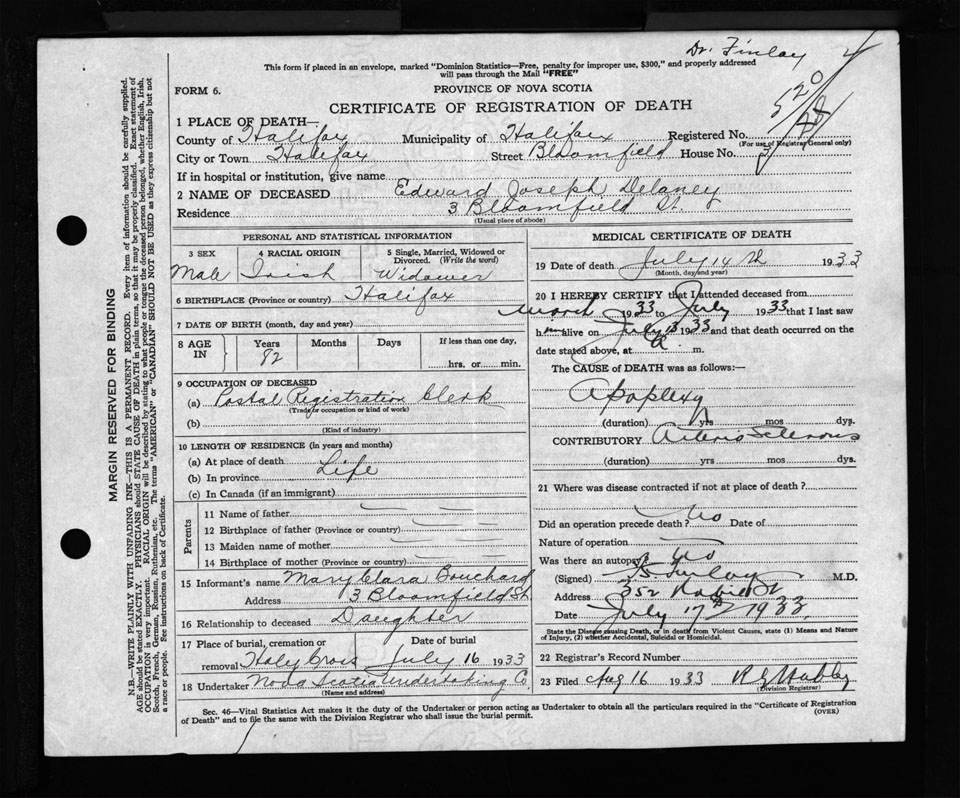 Dr. Finlay
This form if placed in an envelope, marked "Dominion Statistics—Free, penalty for improper use, $300," and properly addressed
will pass through the Mail "FREE"
FORM 6.
PROVINCE OF NOVA SCOTIA
520
CERTIFICATE OF REGISTRATION OF DEATH
1 PLACE OF DEATH—
County of Halifax Municipality of Halifax Registered No.
(For use of Registrar General only)
City or Town Halifax Street Bloomfield House No. 3
If in hospital or institution, give name
2 NAME OF DECEASED Edward Joseph Delaney
Residence 3 Bloomfield St.
(Usual place of abode)
PERSONAL AND STATISTICAL INFORMATION
3 SEX 4 RACIAL ORIGIN 5 Single, Married, Widowed or Divorced. (Write the word)
Male Irish Widower
6 BIRTHPLACE (Province or country) Halifax
7 DATE OF BIRTH (month, day and year)
8 AGE IN Years Months Days If less than one day,
82 hrs. or min.
9 OCCUPATION OF DECEASED
(a) Postal Registration Clerk
(Trade or occupation or kind of work)
(b)
(Kind of industry)
10 LENGTH OF RESIDENCE (in years and months)
(a) At place of death
(b) In province Life
(c) In Canada (if an immigrant)
Parents
11 Name of father
12 Birthplace of father (Province or country)
13 Maiden name of mother
14 Birthplace of mother (Province or country)
15 Informant's name Mary Clara Bouchard
Address 3 Bloomfield St
16 Relationship to deceased Daughter
17 Place of burial, cremation or Date of burial
removal Holy Cross July 16 1933
18 Undertaker Nova Scotia Undertaking Co
(Name and address)
MEDICAL CERTIFICATE OF DEATH
19 Date of death July 14th 1933
(Month, day and year)
20 I HEREBY CERTIFY that I attended deceased from
March 1933 to July 1933 that I last saw
him alive on July 13 1933 and that death occurred on the
date stated above, at a. m.
The CAUSE of DEATH was as follows:—
Apoplexy
(duration) yrs mos dys.
CONTRIBUTORY Arterio Sclerosis
(duration) yrs mos. dys.
21 Where was disease contracted if not at place of death?
Did an operation precede death? No Date of
Nature of operation
Was there an autopsy? No
(Signed) Finlay M.D.
Address 352 Robie St
Date July 17th 1933
State the Disease causing Death, or in death from Violent Causes, state (1) Means and Nature
of Injury, (3) whether Accidental, Suicidal or Homicidal.
22 Registrar's Record Number
23 Filed Aug 16 1933
(Division Registrar)
Sec. 46—Vital Statistics Act makes it the duty of the Undertaker or person acting as Undertaker to obtain all the particulars required in the "Certificate of Registration
of Death" and to file the same with the Division Registrar who shall issue the burial permit.
(OVER)
MARGIN RESERVED FOR BINDING
N.B.—WRITE PLAINLY WITH UNFADING INK—THIS IS A PERMANENT RECORD. Every item of information should be carefully supplied.
AGE should be stated EXACTLY. PHYSICIANS should STATE CAUSE OF DEATH in plain terms, so that it may be properly classified. Exact statement of
OCCUPATION is very important. RACIAL ORIGIN will be described by stating to what people or tongue the deceased person belonged, whether English, Irish,
Scotch, French, German, Russian, Ruthenian, etc. The terms "AMERICAN" or "CANADIAN" SHOULD NOT BE USED as they express citizenship but not
a race or people. See instructions on back of Certificate.